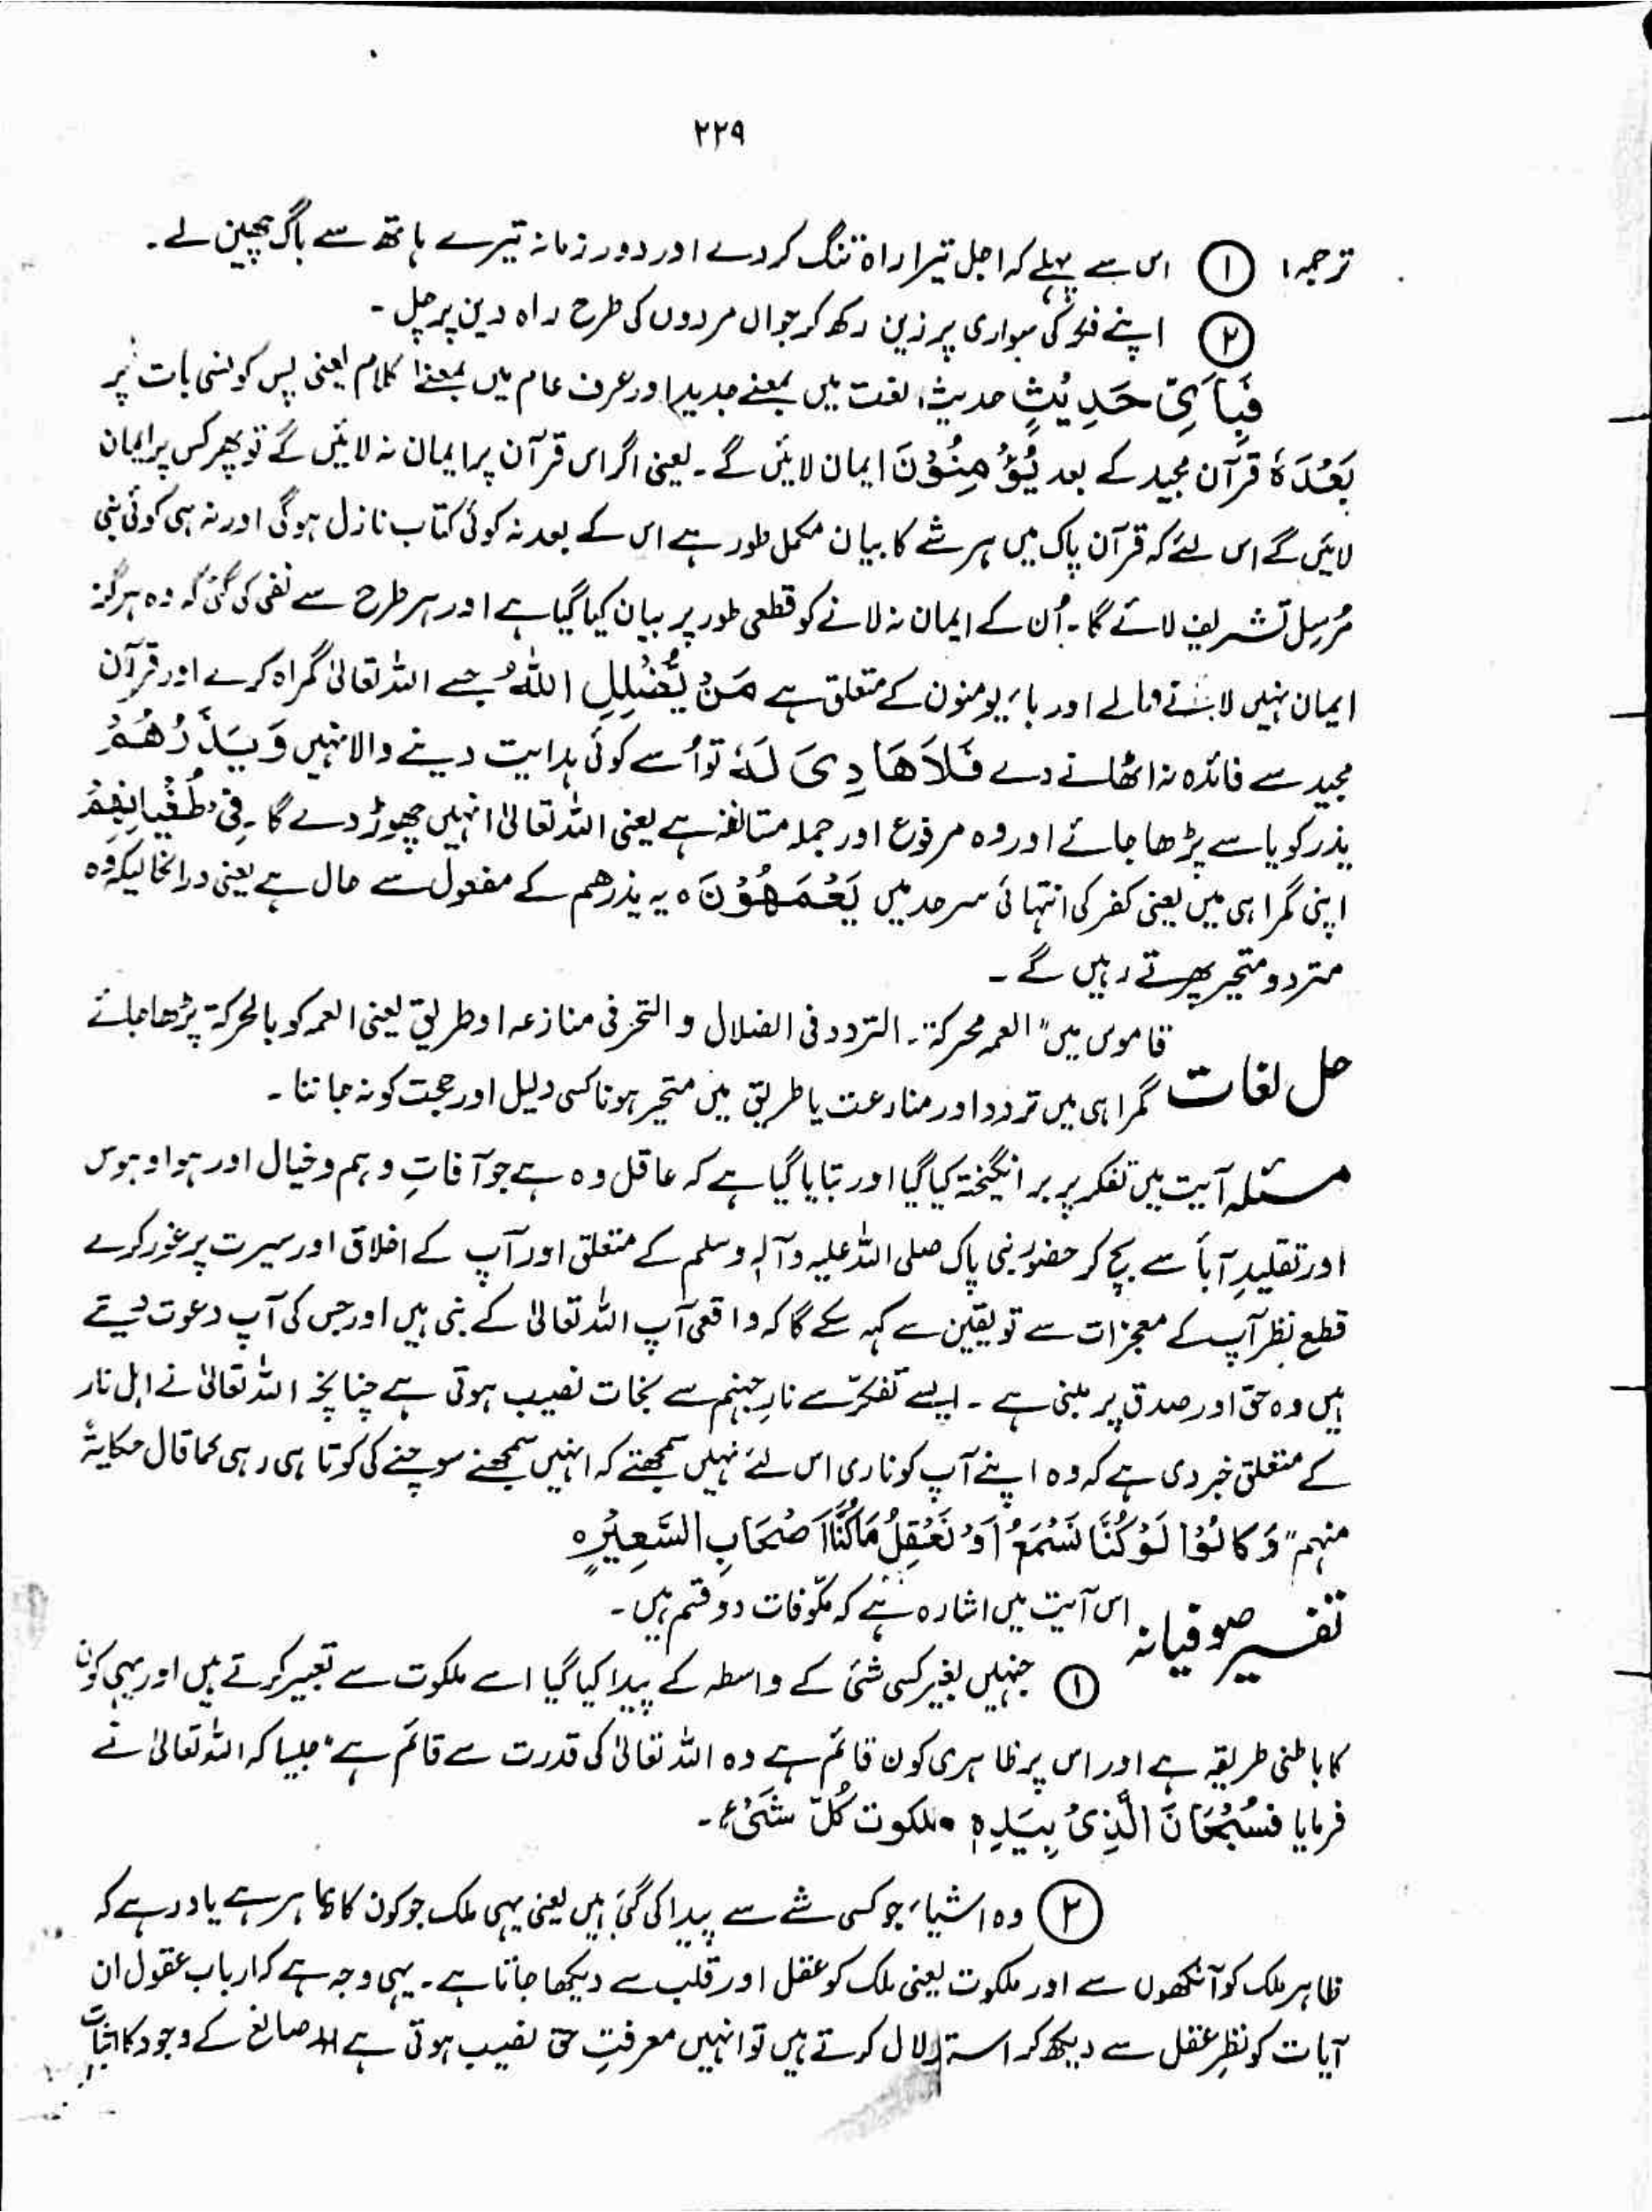 ۲۲۹
ترجمہ: ① اس سے پہلے کہ اجل تیرا راہ تنگ کر دے اور دور زمانہ تیرے ہاتھ سے باگ چھین لے۔
② اپنے فکر کی سواری پر زین رکھ کر جواں مردوں کی طرح راہ دین پر چل۔
فَبِاَیِّ حَدِیْثٍ حدیث، لغت میں بمعنے جدید اور عرف عام میں بمعنے کلام یعنی پس کونسی بات پر
بَعْدَہٗ قرآن مجید کے بعد یُؤْمِنُوْنَ ایمان لائیں گے۔ یعنی اگر اس قرآن پر ایمان نہ لائیں گے تو پھر کس پر ایمان
لائیں گے اس لئے کہ قرآن پاک میں ہر شے کا بیان مکمل طور ہے اس کے بعد نہ کوئی کتاب نازل ہوگی اور نہ ہی کوئی نبی
مُرسل تشریف لائے گا۔ اُن کے ایمان نہ لانے کو قطعی طور پر بیان کیا گیا ہے اور ہر طرح سے نفی کی گئی کہ وہ ہرگز
ایمان نہیں لانے والے اور باء یومنون کے متعلق ہے مَنْ یُّضْلِلِ اللّٰہُ جسے اللہ تعالیٰ گمراہ کرے اور قرآن
مجید سے فائدہ نہ اٹھانے دے فَلَا ھَادِیَ لَہٗ تو اُسے کوئی ہدایت دینے والا نہیں وَیَذَرُھُمْ
یذر کو یا سے پڑھا جائے اور وہ مرفوع اور جملہ مستانفہ ہے یعنی اللہ تعالیٰ انہیں چھوڑ دے گا۔ فِیْ طُغْیَانِھِمْ
اپنی گمراہی میں یعنی کفر کی انتہائی سرحد میں یَعْمَھُوْنَ ہ یہ یذرھم کے مفعول سے حال ہے یعنی درانحالیکہ وہ
متردد و متحیر پھرتے رہیں گے۔
حل لغات قاموس میں "العمہ محرکۃ۔ التردد فی الضلال و التحر فی منازعہ او طریق یعنی العمہ کو بالحرکۃ پڑھا جائے
گمراہی میں تردد اور منارعت یا طریق میں متحیر ہونا کسی دلیل اور حجت کو نہ جاننا۔
مسئلہ آیت میں تفکر پر برانگیختہ کیا گیا اور بتایا گیا ہے کہ عاقل وہ ہے جو آفاتِ وہم و خیال اور ہوا و ہوس
اور تقلیدِ آباً سے بچ کر حضور نبی پاک صلی اللہ علیہ وآلہٖ وسلم کے متعلق اور آپ کے اخلاق اور سیرت پر غور کرے
قطع نظر آپ کے معجزات سے تو یقین سے کہہ سکے گا کہ واقعی آپ اللہ تعالیٰ کے نبی ہیں اور جس کی آپ دعوت دیتے
ہیں وہ حق اور صدق پر مبنی ہے۔ ایسے تفکر سے نارِ جہنم سے نجات نصیب ہوتی ہے چنانچہ اللہ تعالیٰ نے اہل نار
کے متعلق خبر دی ہے کہ وہ اپنے آپ کو ناری اس لئے نہیں سمجھتے کہ انہیں سمجھنے سوچنے کی کوتاہی رہی کما قال حکایۃً
منہم "وَکَانُوْا لَوْ کُنَّا نَسْمَعُ اَوْ نَعْقِلُ مَا کُنَّا اَصْحَابِ السَّعِیْرِہ
تفسیر صوفیانہ اس آیت میں اشارہ ہے کہ مکوفات دو قسم ہیں۔
① جنہیں بغیر کسی شئ کے واسطہ کے پیدا کیا گیا اسے ملکوت سے تعبیر کرتے ہیں اور یہی کون
کا باطنی طریقہ ہے اور اس پر ظاہری کون قائم ہے وہ اللہ تعالیٰ کی قدرت سے قائم ہے جیسا کہ اللہ تعالیٰ نے
فرمایا فَسُبْحَانَ الَّذِیْ بِیَدِہٖ ملکوت کُلِّ شَیْءٍ۔
② وہ اشیاء جو کسی شے سے پیدا کی گئی ہیں یعنی یہی ملک جو کون کا ظاہر ہے یاد رہے کہ
ظاہر ملک کو آنکھوں سے اور ملکوت یعنی ملک کو عقل اور قلب سے دیکھا جاتا ہے۔ یہی وجہ ہے کہ ارباب عقول ان
آیات کو نظرِ عقل سے دیکھ کر استدلال کرتے ہیں تو انہیں معرفتِ حق نصیب ہوتی ہے اور صانع کے وجود کا اثبات